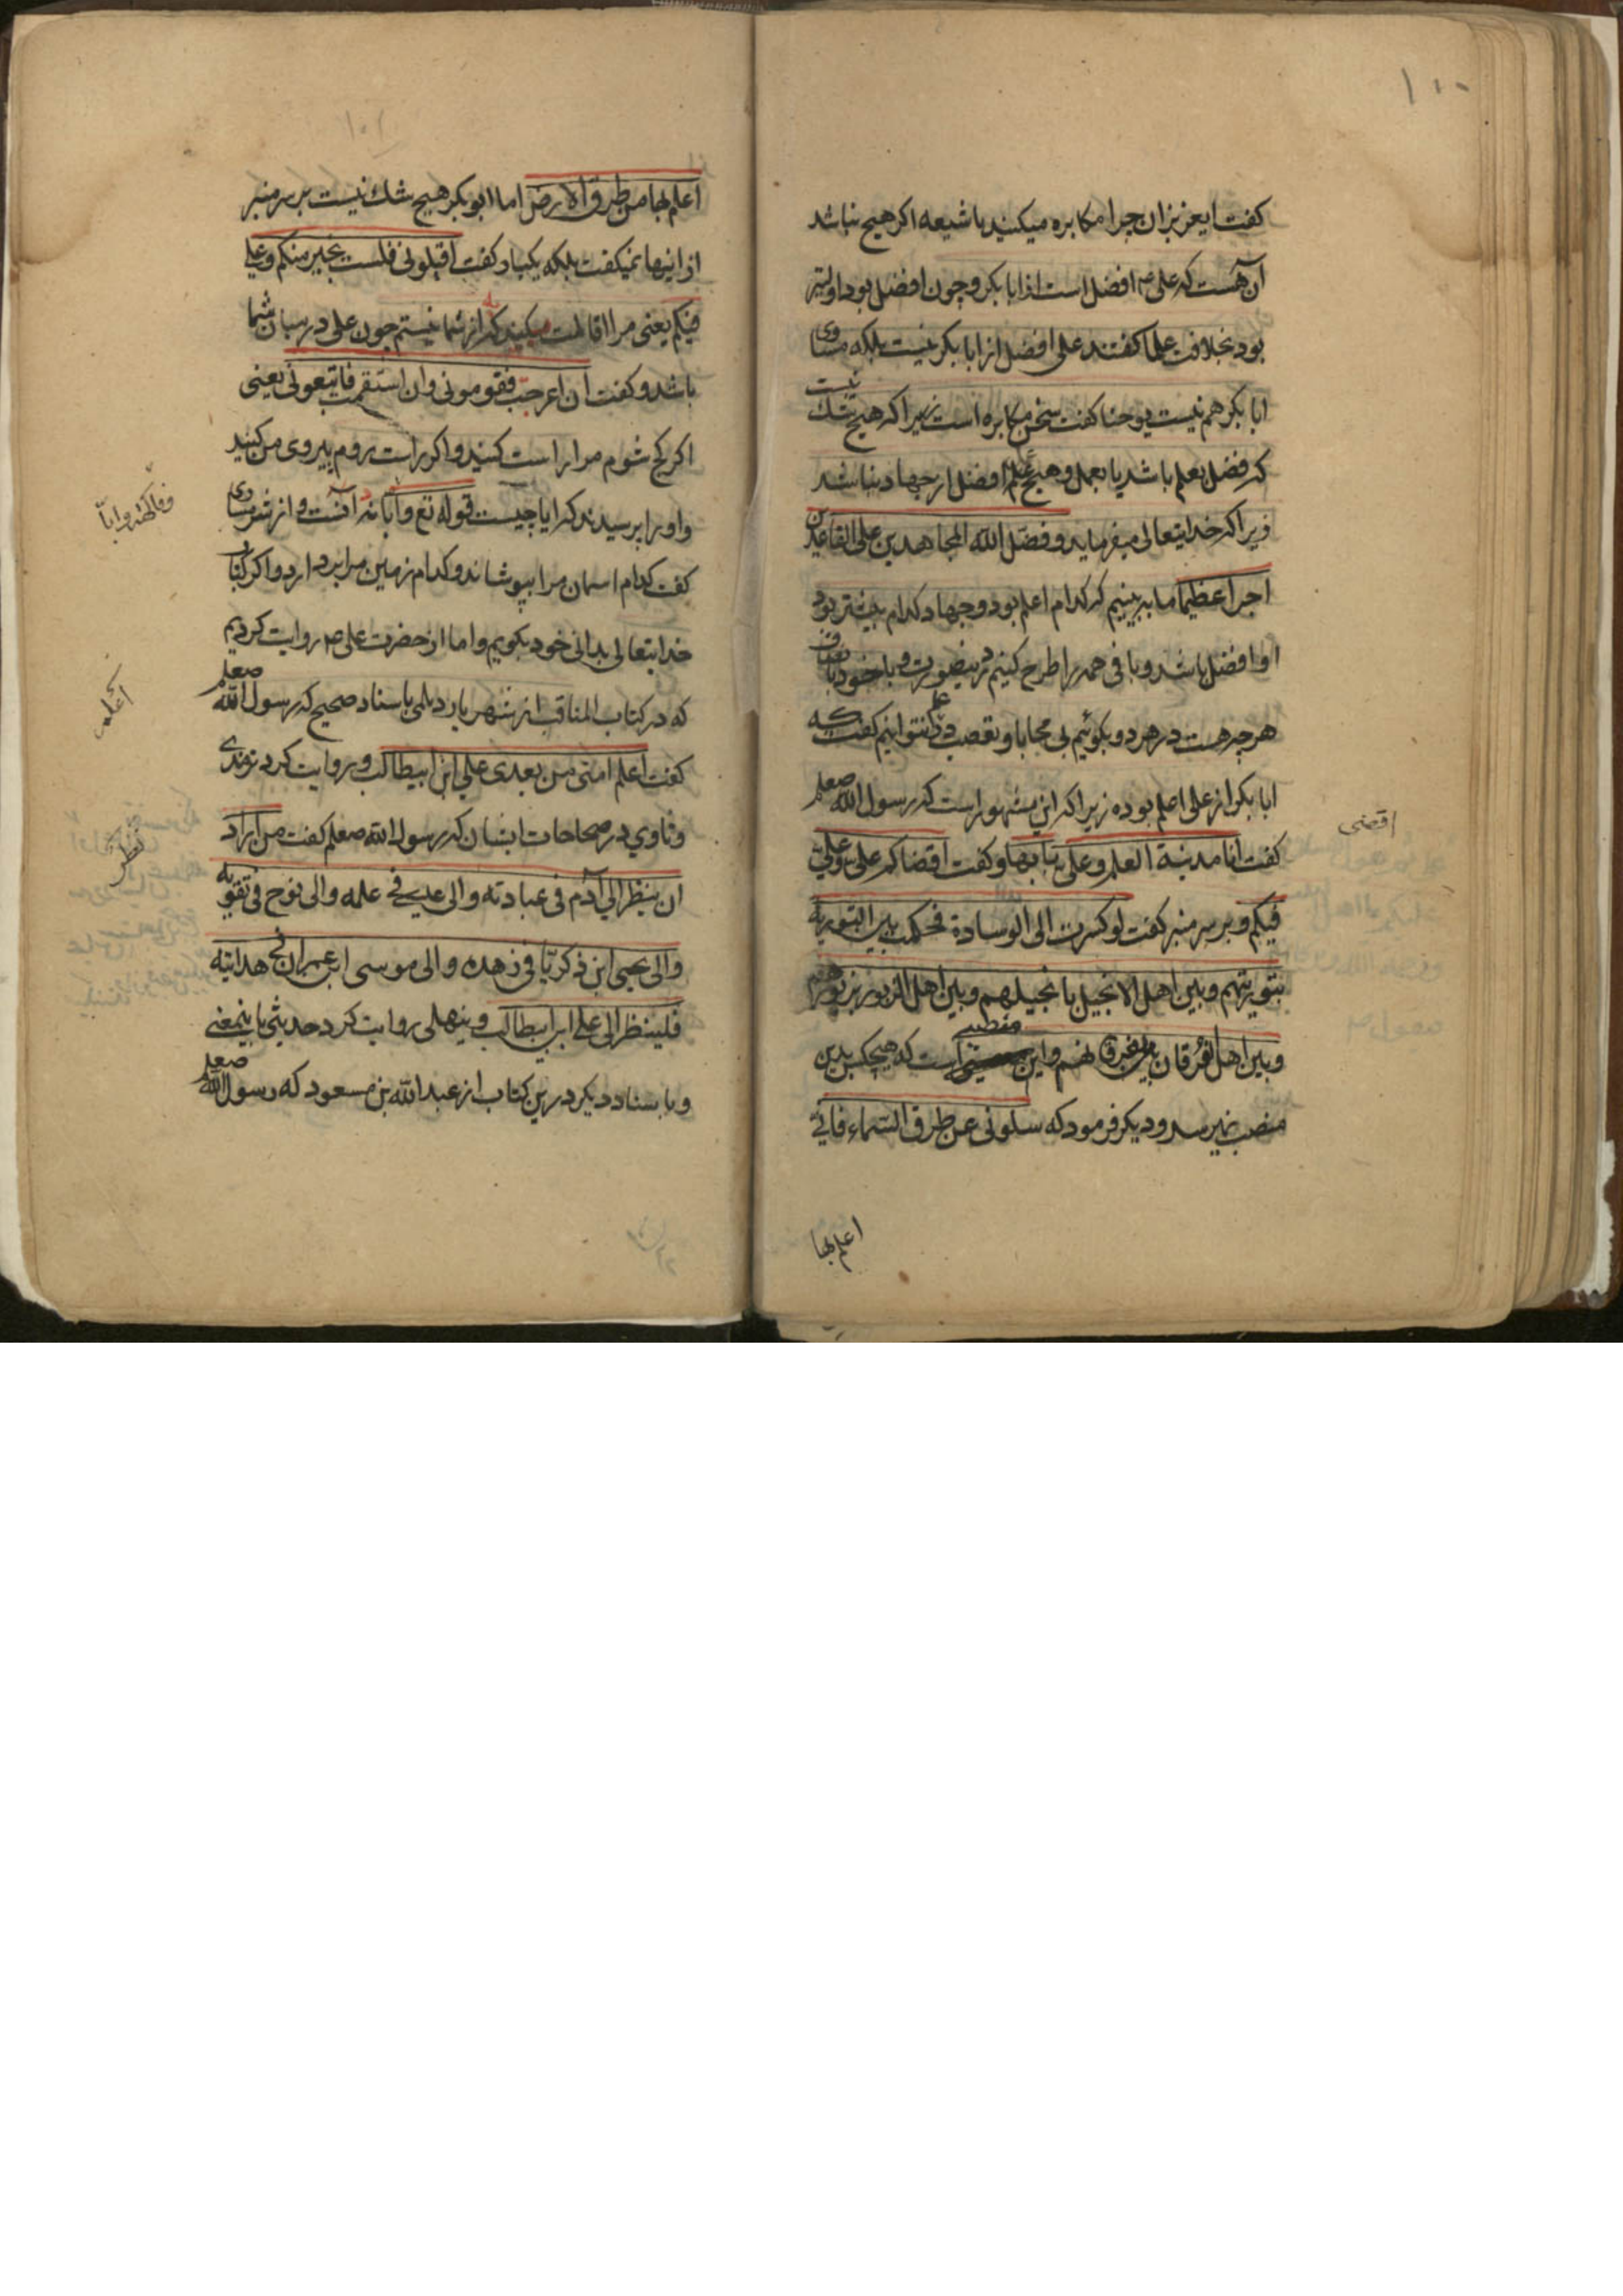 ۱۰۰
کفت ایعزیزان چرا مکابره میکنید با شیعه اکر هیچ نباشد
آن هست که علی ع افضل است از ابا بکر و چون افضل بود اولیتر
بود بخلافت علما کفتند علی افضل از ابا بکر نیست بلکه مساوی
ابا بکر هم نیست یوحنا کفت سخن مکابره است زیرا که هیچ شک نیست
که فضل بعلم باشد یا بعمل و هیچ عمل افضل از جهاد نباشد
زیرا که خدایتعالی میفرماید و فضل الله المجاهدین علی القاعدین
اجرا عظیما ما ببینیم که کدام اعلم بود و جهاد کدام بیشتر بود
او افضل باشد و باقی همه را طرح کنیم درینصورت و با خود
هر چه هست در هر دو بکوئیم بی محابا و تعصب نتوانیم کفت که
ابا بکر از علی اعلم بوده زیرا که این مشهور است که رسول الله صعلم
کفت انا مدینة العلم و علی بابها و کفت اقضاکم علی و علی
فیکم و بر سر منبر کفت لو کسرت الی الوسادة فحکمت بین التوریة
بتوریتهم و بین اهل الانجیل بانجیلهم و بین اهل الزبور بزبورهم
و بین اهل الفرقان بفرقانهم و این منصبی است که هیچکس بدین
منصب نمیرسد و دیکر فرمود که سلونی عن طرق السماء فانی
اقضی
اعلم بها
۱۰۱
اعلم بها من طرق الارض اما ابو بکر هیچ شک نیست بر سر منبر
از اینها نمیکفت بلکه یکبار کفت اقیلونی فلست بخیر منکم و علی
فیکم یعنی مرا اقالت میکنید که از شما نیستم چون علی در میان شما
باشد و کفت ان اعوججت فقومونی وان استقمت فاتبعونی یعنی
اکر کج شوم مرا راست کنید و اکر راست روم پیروی من کنید
و او را پرسیدند که ابا چیست قوله تع و ابا نه آنست و از
کفت کدام اسمان مرا بپوشاند و کدام زمین مرا بردارد و اکر کتاب
خدایتعالی بدانی خود بکویم و اما از حضرت علی ص روایت کردیم
که در کتاب المناقب از شهریار دیلمی باسناد صحیح که رسول الله صعلم
کفت اعلم امتی من بعدی علی ابن ابیطالب و روایت کرد
و ناوی در صحاحات ایشان که رسول الله صعلم کفت من اراد
ان ینظر الی آدم فی عبادته و الی عیسی فی علمه و الی نوح فی تقویه
و الی یحیی ابن ذکریا فی زهده و الی موسی ابن عمران فی هدایته
فلینظر الی علی ابن ابیطالب و بیهقی روایت کرد حدیثی باینمعنی
و با سناد دیکر درین کتاب از عبدالله بن مسعود که رسول الله صعلم
و فاکهة و ابا